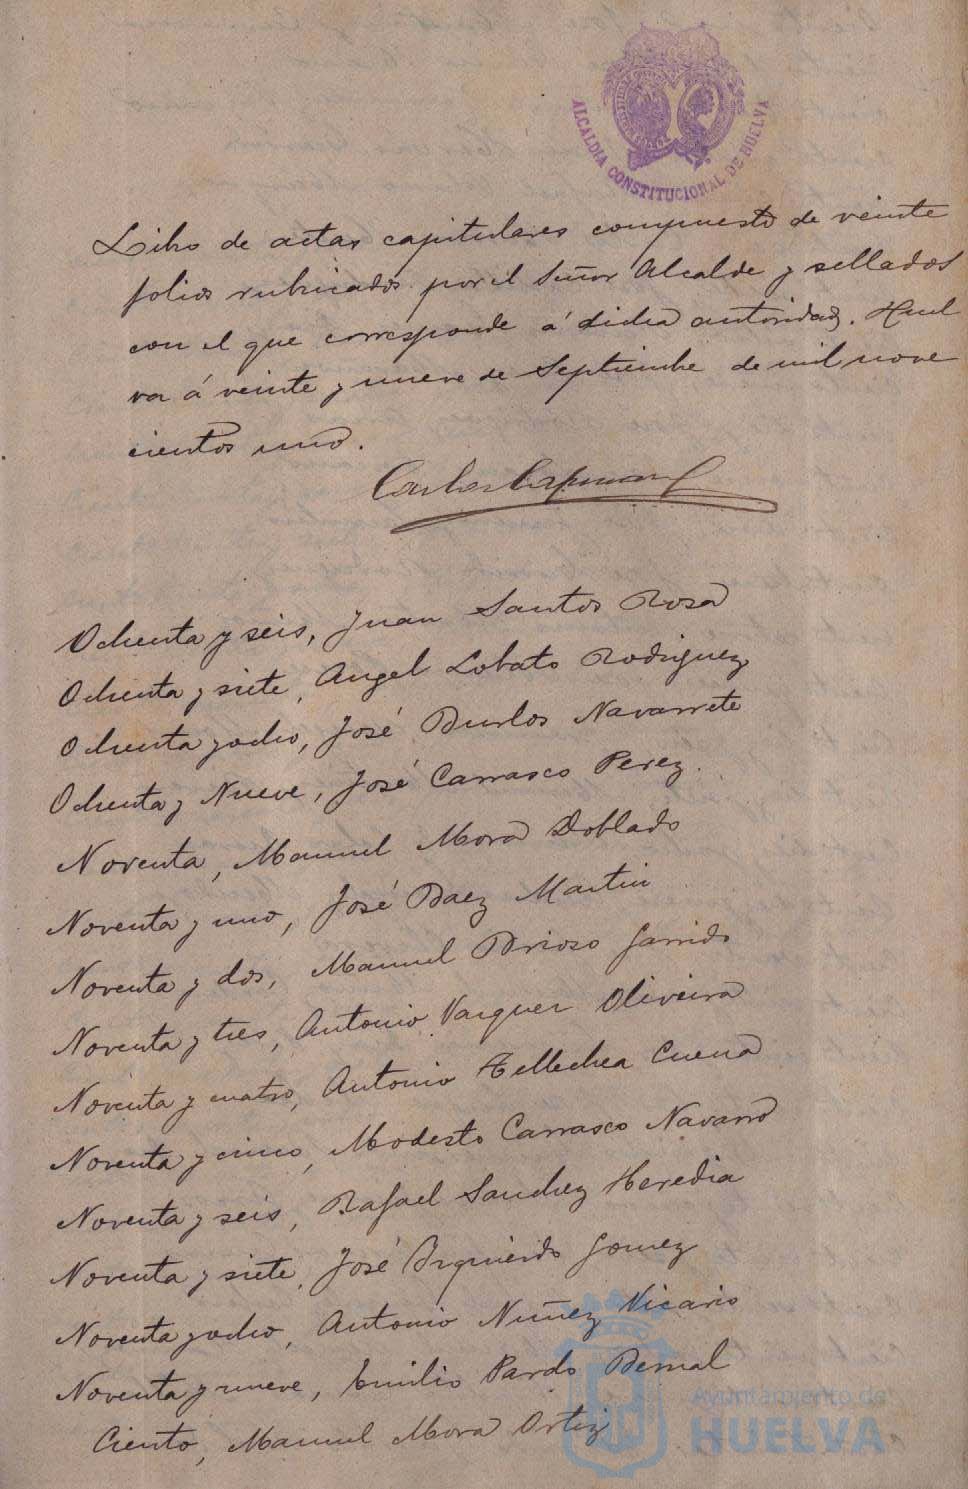 ALCALDIA CONSTITUCIONAL DE HUELVA
Libro de actas capitulares compuesto de veinte
folios rubricados por el Señor Alcalde y sellados
con el que corresponde á dicha autoridad. Huel
va á veinte y nueve de Septiembre de mil nove
cientos uno.
Carlos
Ochenta y seis, Juan Santos Rosa
Ochenta y siete, Angel Lobato Rodriguez
Ochenta y ocho, José Burlos Navarrete
Ochenta y Nueve, José Carrasco Perez.
Noventa, Manuel Mora Doblado
Noventa y uno, José Baez Martin
Noventa y dos, Manuel Brioso Garrido
Noventa y tres, Antonio Vazquez Oliveira
Noventa y cuatro, Antonio Tellechea Cuena
Noventa y cinco, Modesto Carrasco Navarro
Noventa y seis, Rafael Sanchez Heredia
Noventa y siete, José Izquierdo Gomez
Noventa y ocho, Antonio Nuñez Vicario
Noventa y nueve, Emilio Pardo Bernal
Ciento, Manuel Mora Ortiz
Ayuntamiento de
HUELVA